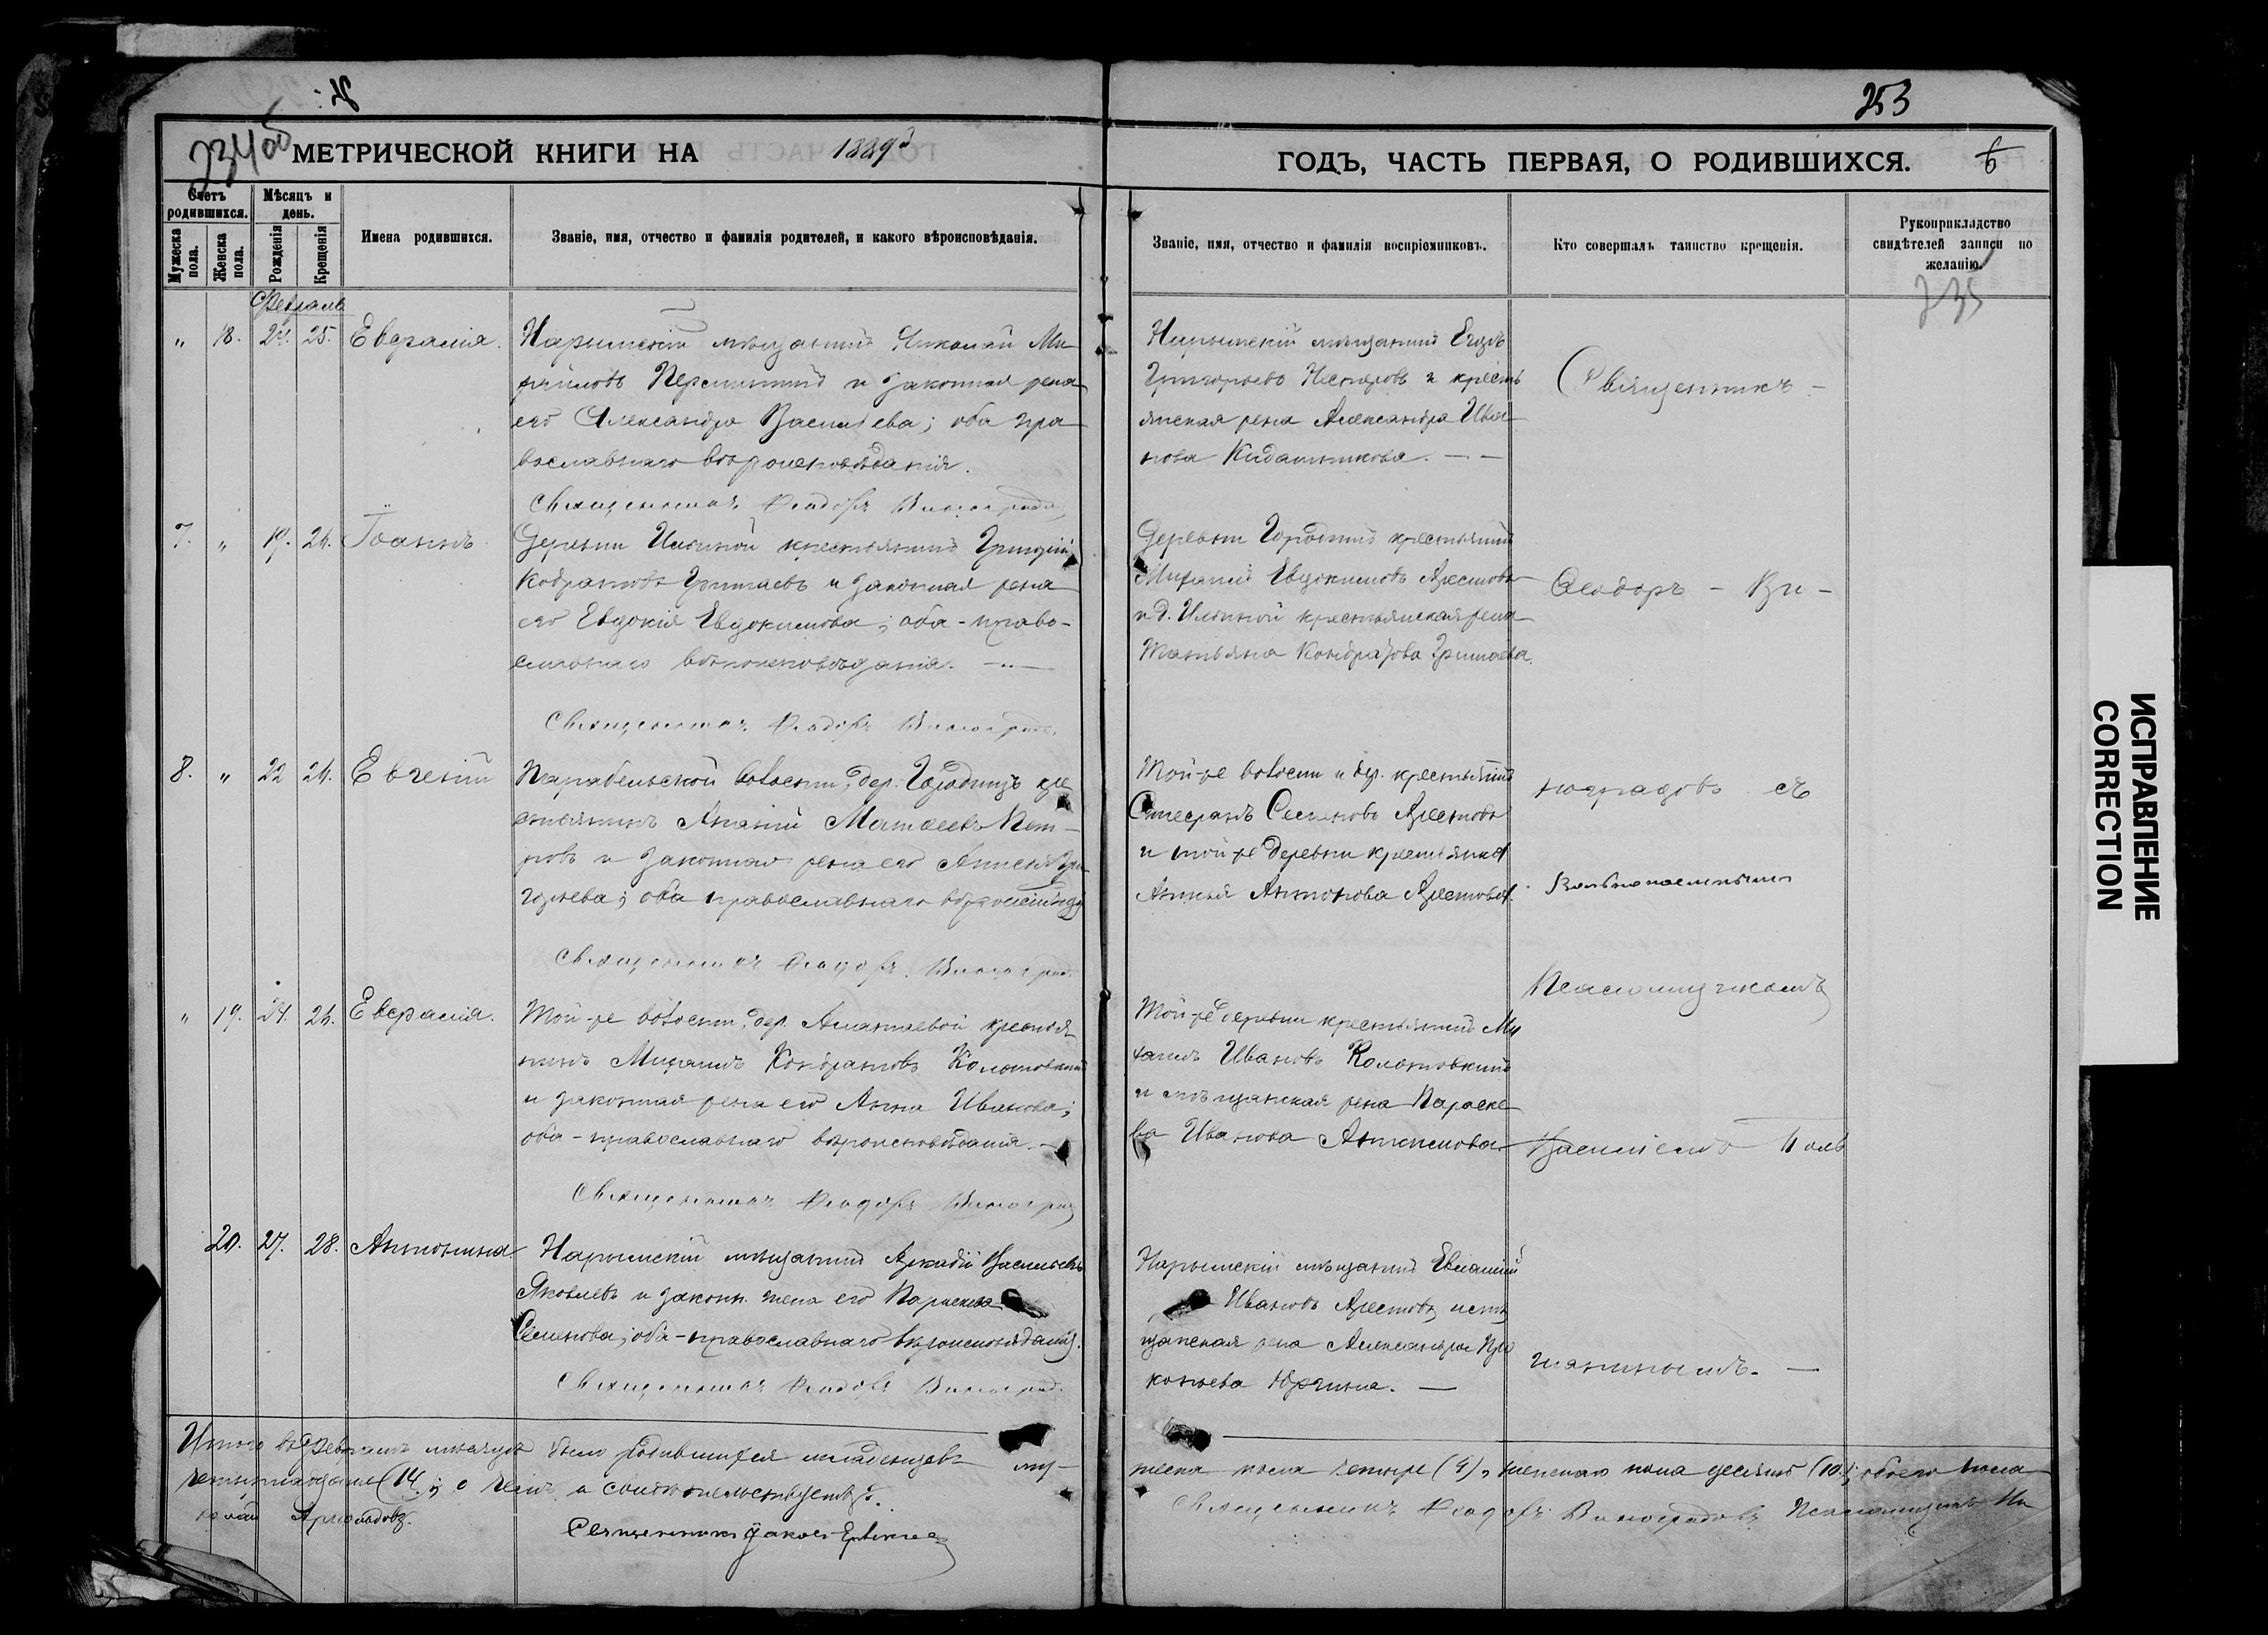 253
234об
МЕТРИЧЕСКОЙ КНИГИ НА 1889й
ГОДЪ, ЧАСТЬ ПЕРВАЯ, О РОДИВШИХСЯ. 6
Счетъ родившихся.
Мужеска пола.
Женска пола.
Мѣсяцъ и день.
Рожденія
Крещенія
Имена родившихся.
Званіе, имя, отчество и фамилія родителей, и какого вѣроисповѣданія.
Званіе, имя, отчество и фамилія воспріемниковъ.
Кто совершалъ таинство крещенія.
Рукоприкладство свидѣтелей записи по желанію.
235
Февраль
„ 18. 25. Евфалія.
Нарымскій мѣщанинъ Николай Ми-
хайловъ и законная жена
его Александра Васильева; оба пра-
вославнаго вѣроисповѣданія.
Священникъ Ѳеодоръ Виноградовъ
Нарымскій мѣщанинъ
Григорьевъ Нестеровъ и кресть
янская жена Александра Ива
нова —
Священникъ –
7. „ 19. 26. Іоаннъ
Деревни Ильиной крестьянинъ Григорій
Кондратовъ Гришаевъ и законная жена
его Евдокія Евдокимова; оба - право-
славнаго вѣроисповѣданія. —
Священникъ Ѳеодоръ Виноградовъ
Деревни Городище крестьянинъ
Михаилъ Евдокимовъ Арестовъ
и д. Ильиной крестьянская жена
Татьяна Кондратова Гришаева.
Ѳеодоръ – Ви –
8. „ 22 26. Евгеній
Парабельской волости, дер. Городище кре
стьянинъ Ананій Матѳеевъ
и законная жена его Аксенья Гри
горьева; оба православнаго вѣроисповѣд
Священникъ Ѳеодоръ Виноград
Той-же волости и дер. крестьянинъ
Стефанъ Семеновъ Арестовъ
и той же деревни крестьянка
Анна Антонова Арестова.
ноградовъ съ
вольнонаемнымъ
Псаломщикомъ
„ 19. 24. 26. Евфалія.
Той-же волости, дер. Алатаевой крестья
нинъ Михаилъ Кондратовъ
и законная жена его Анна Иванова;
оба - православнаго вѣроисповѣданія. —
Священникъ Ѳеодоръ Виноград
Той-же деревни крестьянинъ Ми
хаилъ Ивановъ
и мѣщанская жена Параске
ва Иванова
Василіемъ Поль
20. 27. 28. Антонина
Нарымскій мѣщанинъ Аркадій Васильевъ
Яковлевъ и законн. жена его Параскева
Семенова; оба - православнаго вѣроисповѣданія.
Священникъ Ѳеодоръ Виноград.
Нарымскій мѣщанинъ
Ивановъ Арестовъ и мѣ
щанская жена Александра Про
копьева —
шаниномъ. —
Итого въ Февралѣ мѣсяцѣ было родившихся младенцевъ му-
жеска пола четыре (4), женскаго пола десять (10), обоего пола
четырнадцать (14); о чемъ и свидѣтельствуетъ.
Священникъ Ѳеодоръ Виноградовъ Псаломщикъ Ни
колай
Священникъ Іаковъ
ИСПРАВЛЕНИЕ
CORRECTION